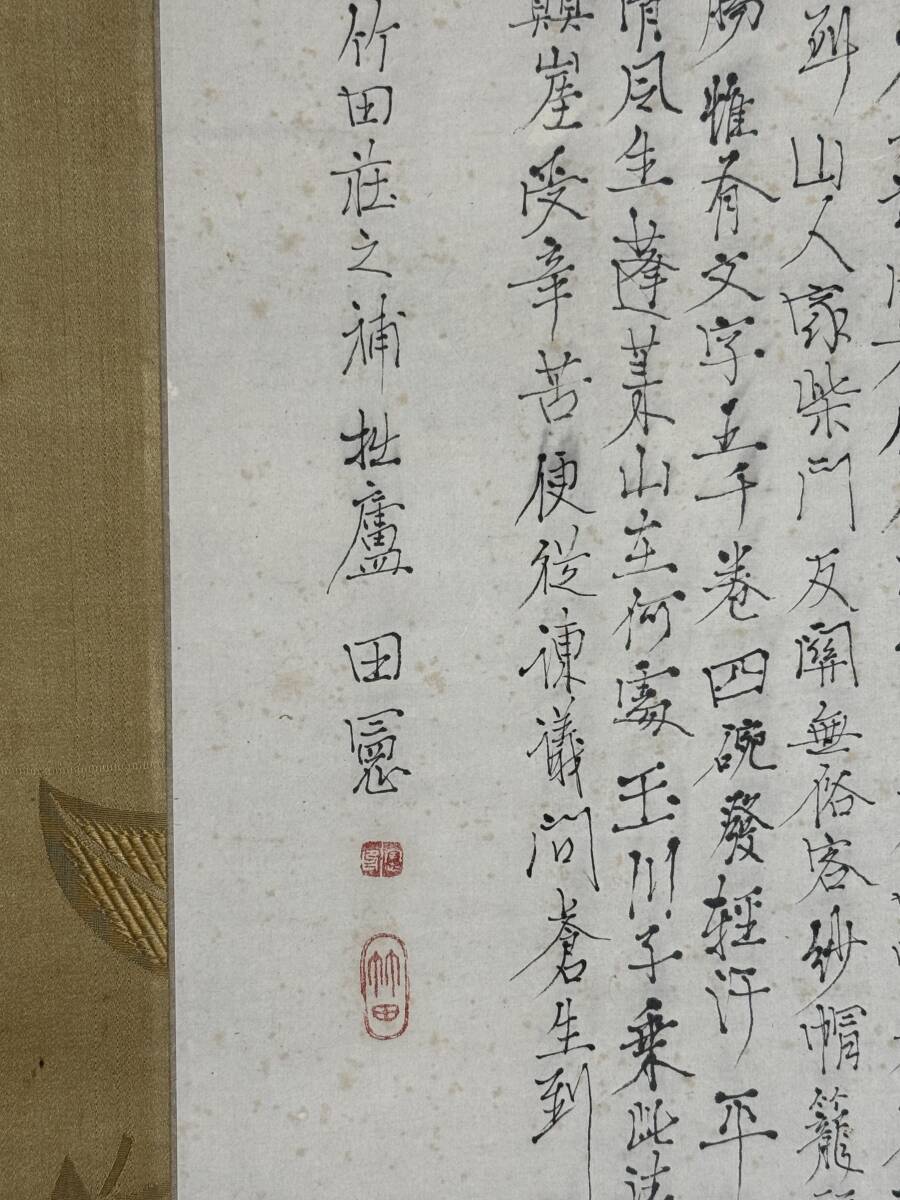 到山人家柴門反關無俗客紗帽籠
腸惟有文字五千卷四碗發輕汗平
清風生蓬萊山在何處玉川子乗此清
顛崖受辛苦便從諫議問蒼生到
竹田荘之補拙廬 田憲
竹田